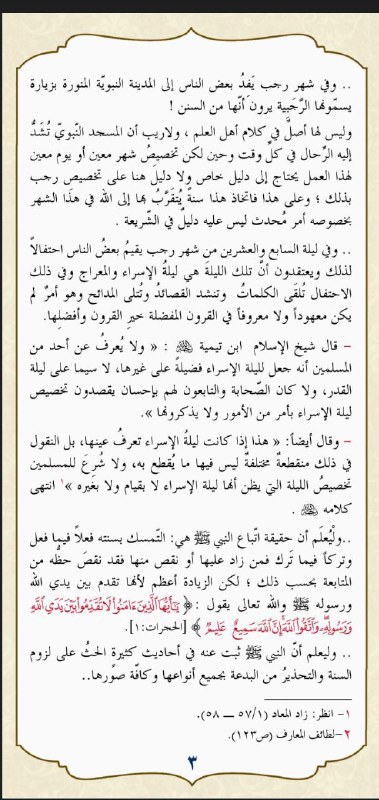 .. وفي شهر رجب يَفِدُ بعض الناس إلى المدينة النبويّة المنورة بزيارة
يسمّونها الرَّجَبِية يرون أنّها من السنن !
وليس لها أصلٌ في كلام أهل العلم ، ولاريب أن المسجد النّبويّ تُشَدُّ
إليه الرِّحال في كلِّ وقت وحين لكن تخصيصُ شهر معين أو يوم معين
لهذا العمل يحتاج إلى دليل خاص ولا دليل هنا على تخصيص رجب
بذلك ؛ وعلى هذا فاتخاذ هذا سنةً يُتقَرَّبُ بها إلى الله في هذا الشهر
بخصوصه أمر مُحدث ليس عليه دليلٌ في الشّريعة .
.. وفي ليلة السابع والعشرين من شهر رجب يقيمُ بعضُ الناس احتفالاً
لذلك ويعتقدون أنّ تلك الليلةَ هي ليلةُ الإسراء والمعراج وفي ذلك
الاحتفال تُلقَى الكلماتُ وتنشد القصائدُ وتُتلى المدائح وهو أمرٌ لم
يكن معهوداً ولا معروفاً في القرون المفضلة خيرِ القرون وأفضلِها.
– قال شيخ الإسلام ابن تيمية ﷺ : « ولا يُعرفُ عن أحد من
المسلمين أنه جعل لليلة الإسراء فضيلةً على غيرها، لا سيما على ليلة
القدر، ولا كان الصّحابة والتابعون لهم بإحسان يقصدون تخصيص
ليلة الإسراء بأمر من الأمور ولا يذكرونها ».
– وقال أيضاً: « هذا إذا كانت ليلةُ الإسراء تعرفُ عينها، بل النقول
في ذلك منقطعةٌ مختلفةٌ ليس فيها ما يُقطع به، ولا شُرعَ للمسلمين
تخصيصُ الليلة التي يظن أنها ليلة الإسراء لا بقيام ولا بغيره »١ انتهى
كلامه .
..ولْيُعلَم أن حقيقة اتّباع النبي ﷺ هي: التّمسك بسنته فعلاً فيما فعل
وتركاً فيما تَرك فمن زاد عليها أو نقص منها فقد نقصَ حظُّه من
المتابعة بحسب ذلك ؛ لكن الزيادة أعظم لأنها تقدم بين يدي الله
ورسوله ﷺ والله تعالى يقول :﴿ يَٰٓأَيُّهَا ٱلَّذِينَ ءَامَنُوا۟ لَا تُقَدِّمُوا۟ بَيْنَ يَدَىِ ٱللَّهِ
وَرَسُولِهِۦ وَٱتَّقُوا۟ ٱللَّهَ إِنَّ ٱللَّهَ سَمِيعٌ عَلِيمٌ ﴾ [الحجرات:١].
.. وليعلم أنّ النبي ﷺ ثبت عنه في أحاديث كثيرةٍ الحثُ على لزوم
السنة والتحذيرُ من البدعة بجميع أنواعها وكافّة صورها..
١- انظر: زاد المعاد (٥٧/١ — ٥٨).
٢-لطائف المعارف (ص١٢٣).
٣